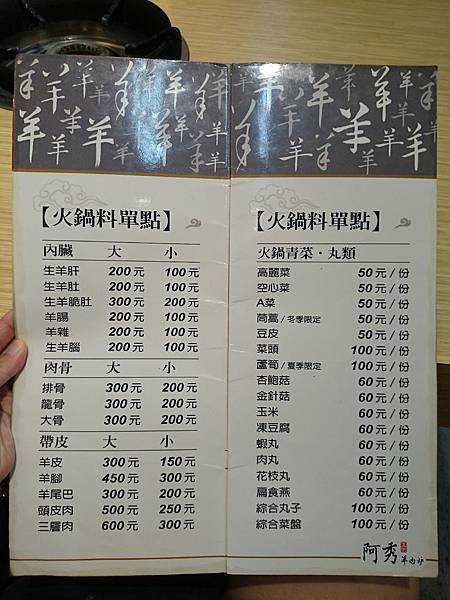 【火鍋料單點】
內臟 大 小
生羊肝 200元 100元
生羊肚 200元 100元
生羊脆肚 300元 200元
羊腸 200元 100元
羊雜 200元 100元
生羊腦 200元 100元
肉骨 大 小
排骨 300元 200元
龍骨 300元 200元
大骨 300元 200元
帶皮 大 小
羊皮 300元 150元
羊腳 450元 300元
羊尾巴 300元 200元
頭皮肉 500元 250元
三層肉 600元 300元
【火鍋料單點】
火鍋青菜・丸類
高麗菜 50元/份
空心菜 50元/份
A菜 50元/份
茼蒿/冬季限定 50元/份
豆皮 50元/份
菜頭 100元/份
蘆筍/夏季限定 100元/份
杏鮑菇 60元/份
金針菇 60元/份
玉米 60元/份
凍豆腐 60元/份
蝦丸 60元/份
肉丸 60元/份
花枝丸 60元/份
扁食燕 60元/份
綜合丸子 100元/份
綜合菜盤 100元/份
阿秀 羊肉爐